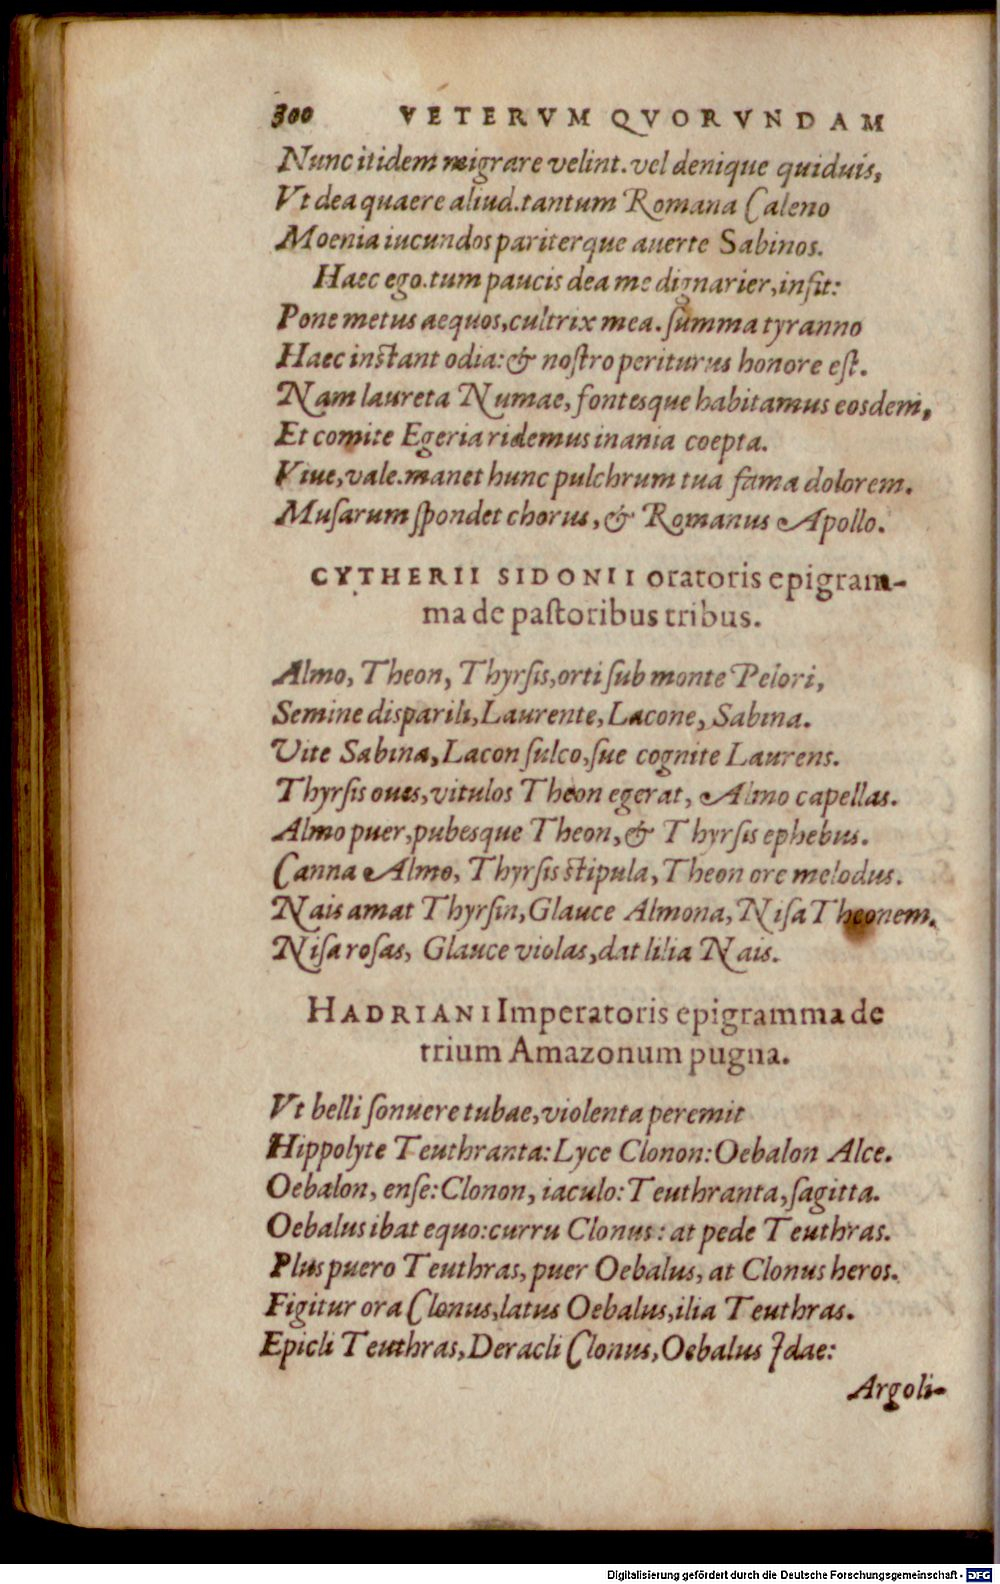 300 VETERVM QVORVNDAM
Nunc itidem migrare velint. vel denique quiduis,
Vt dea quaere aliud. tantum Romana Caleno
Moenia iucundos pariterque auerte Sabinos.
Haec ego. tum paucis dea me dignarier, insit:
Pone metus aequos, cultrix mea. summa tyranno
Haec instant odia: & nostro periturus honore est.
Nam laureta Numae, fontesque habitamus eosdem,
Et comite Egeria ridemus inania coepta.
Viue, vale. manet hunc pulchrum tua fama dolorem.
Musarum spondet chorus, & Romanus Apollo.
CYTHERII SIDONII oratoris epigram-
ma de pastoribus tribus.
Almo, Theon, Thyrsis, orti sub monte Pelori,
Semine disparili, Laurente, Lacone, Sabina.
Vite Sabina, Lacon sulco, sue cognite Laurens.
Thyrsis oues, vitulos Theon egerat, Almo capellas.
Almo puer, pubesque Theon, & Thyrsis ephebus.
Canna Almo, Thyrsis stipula, Theon ore melodus.
Nais amat Thyrsin, Glauce Almona, Nisa Theonem.
Nisa rosas, Glauce violas, dat lilia Nais.
HADRIANI Imperatoris epigramma de
trium Amazonum pugna.
Vt belli sonuere tubae, violenta peremit
Hippolyte Teuthranta: Lyce Clonon: Oebalon Alce.
Oebalon, ense: Clonon, iaculo: Teuthranta, sagitta.
Oebalus ibat equo: curru Clonus: at pede Teuthras.
Plus puero Teuthras, puer Oebalus, at Clonus heros.
Figitur ora Clonus, latus Oebalus, ilia Teuthras.
Epicli Teuthras, Deracli Clonus, Oebalus Idae:
Argoli-
Digitalisierung gefördert durch die Deutsche Forschungsgemeinschaft - DFG